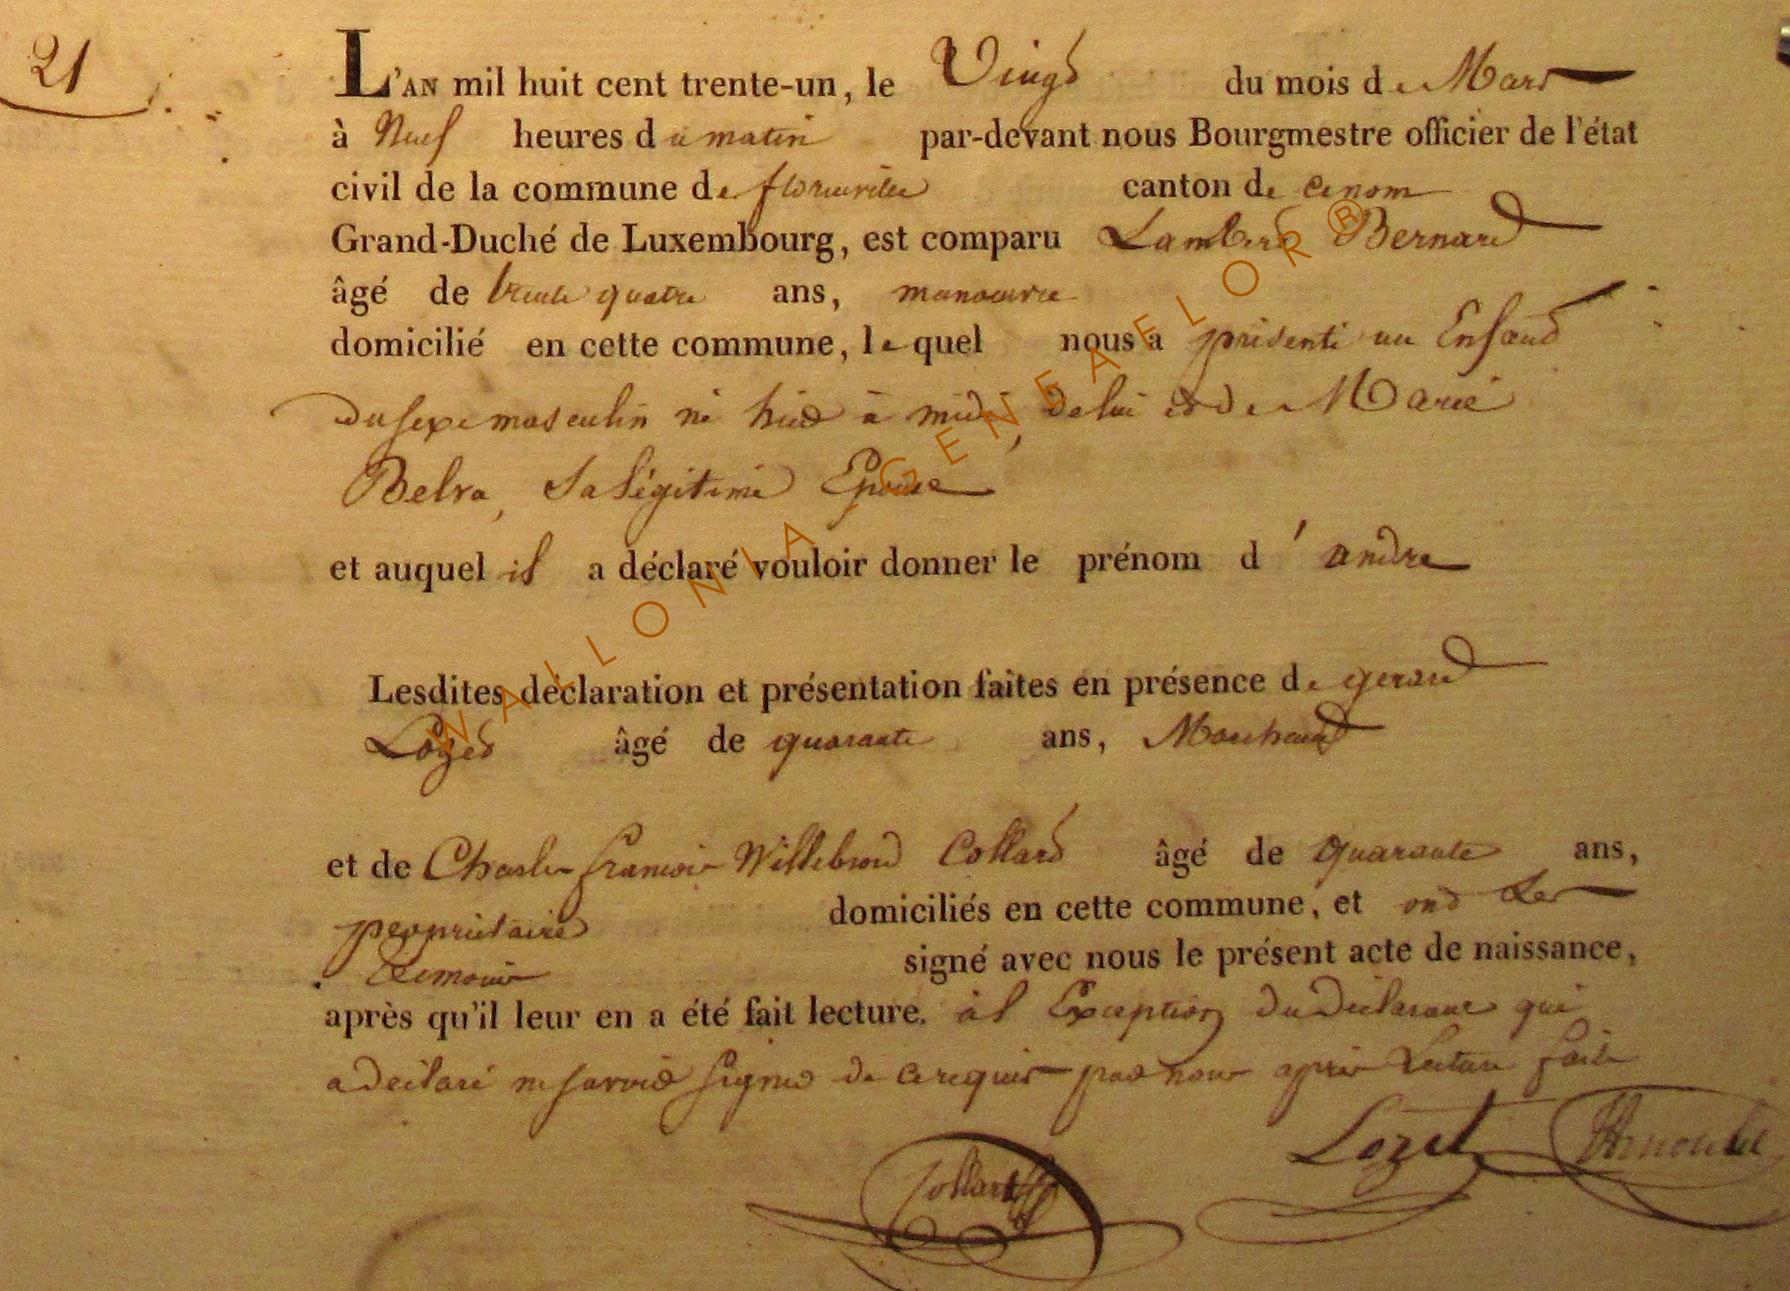 21
L'AN mil huit cent trente-un, le Vingt du mois de Mars
à Neuf heures du matin par-devant nous Bourgmestre officier de l'état
civil de la commune de florenville canton de ce nom
Grand-Duché de Luxembourg, est comparu Lambert Bernard
âgé de trente quatre ans, manoeuvre
domicilié en cette commune, lequel nous a présenté un Enfant
du sexe masculin né hier à midi, de lui et de Marie
Belva, Sa légitime Epouse
et auquel il a déclaré vouloir donner le prénom d'andre
Lesdites déclaration et présentation faites en présence de gerard
Lozet âgé de quarante ans, Marchand
et de Charles francois Willebrord Collard âgé de quarante ans,
propriétaire domiciliés en cette commune, et ont Les
temoins signé avec nous le présent acte de naissance,
après qu'il leur en a été fait lecture. à l'Exception du Déclarant qui
a déclaré ne savoir signer de ce requis par nous après Lecture faite
Collard Lozet
WALLONIA GENEAELOR ®